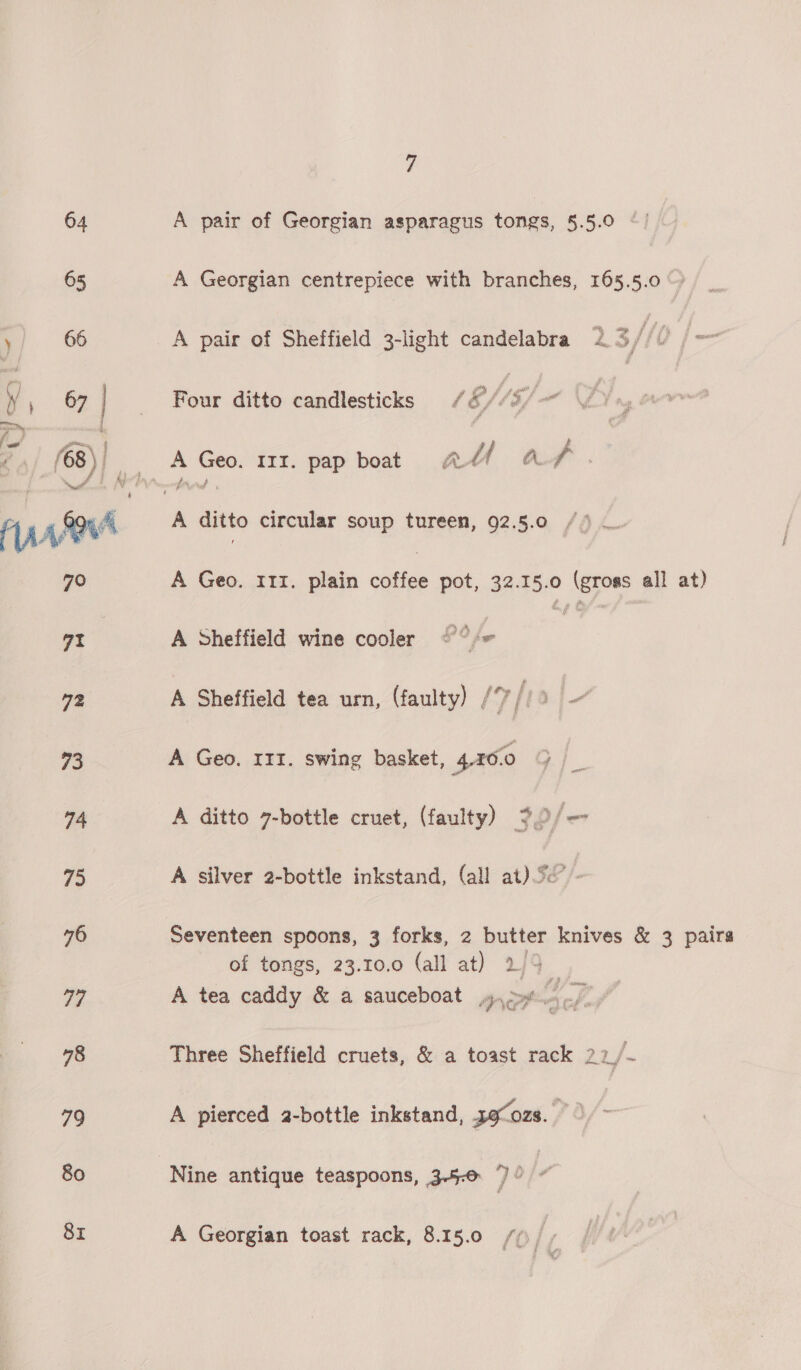 7
64 A pair of Georgian asparagus tongs, 5.5.0
65 A Georgian centrepiece with branches, 165.5.0
66 A pair of Sheffield 3-light candelabra 23/10/-
67 Four ditto candlesticks 18/15/-
68 A Geo. III. pap boat all at
69 A ditto circular soup tureen, 92.5.0
70 A Geo. III. plain coffee pot, 32.15.0 (gross all at)
71 A Sheffield wine cooler
72 A Sheffield tea urn, (faulty) 17/10/-
73 A Geo. III. swing basket, 4.10.0
74 A ditto 7-bottle cruet, (faulty)
75 A silver 2-bottle inkstand, (all at)
76 Seventeen spoons, 3 forks, 2 butter knives & 3 pairs
of tongs, 23.10.0 (all at) 2/9
77 A tea caddy & a sauceboat
78 Three Sheffield cruets, & a toast rack 22/-
79 A pierced 2-bottle inkstand, ozs.
80 Nine antique teaspoons, 3.5.0
81 A Georgian toast rack, 8.15.0